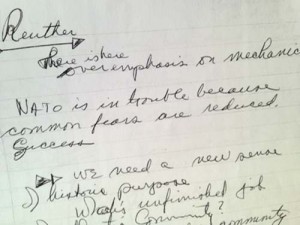 Reuther
There is here
over emphasis on mechanic
NATO is in trouble because
common fears are reduced.
Success
We need a new sense
historic purpose
unfinished job
Community?
community